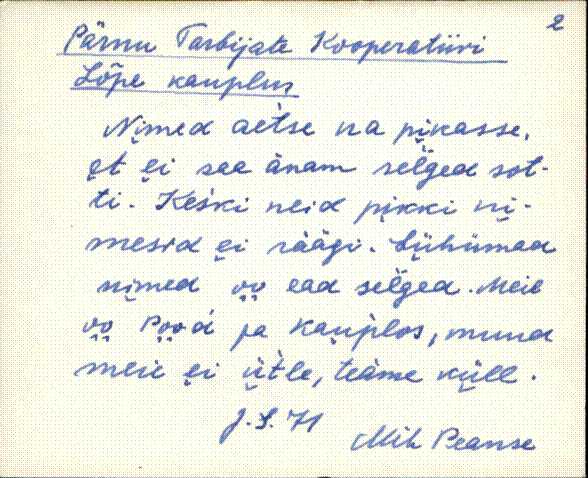 2
Pärnu Tarbijate Kooperatiivi
Lõpe kauplus
Nimed aetse na pikasse,
et ei saa änam selged sot-
ti. Keski neid pikki ni-
mesid ei räägi. Lühümad
nimed oo ead selged. Meie
oo Pood ja kauplos, muud
meie ei ütle, teäme küll.
J. S. 71
Mih Peanse